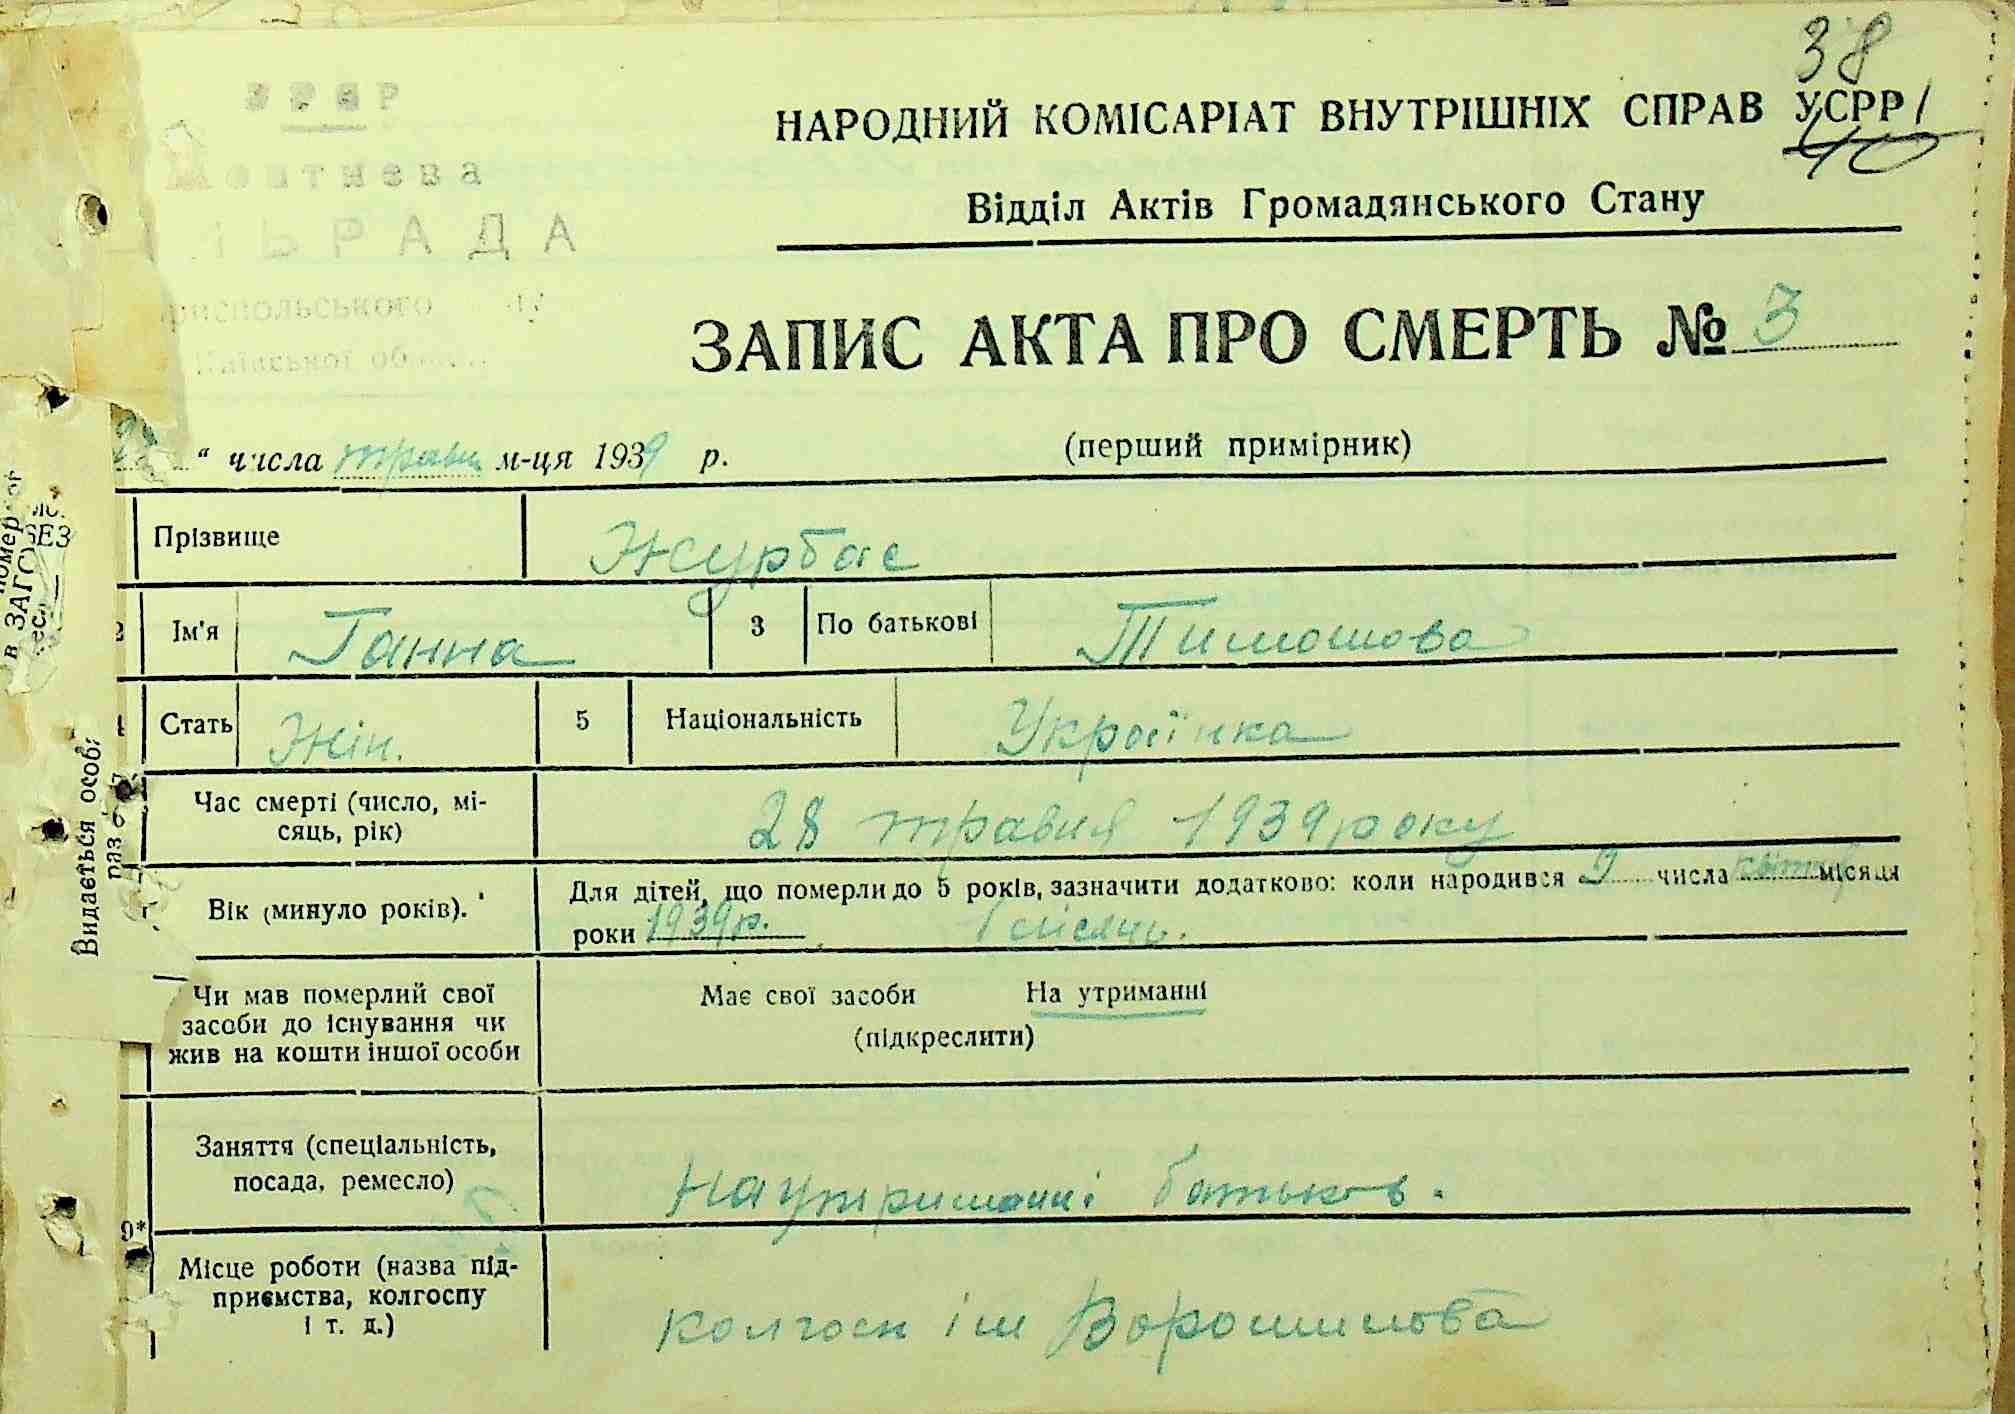 38
УРСР
НАРОДНИЙ КОМІСАРІАТ ВНУТРІШНІХ СПРАВ УСРР
40
Відділ Актів Громадянського Стану
РАДА
ЗАПИС АКТА ПРО СМЕРТЬ № 3
“ числа травн м-ця 1939 р.
(перший примірник)
Прізвище Журбас
Ім'я Ганна 3 По батькові Тимошова
Стать Жін. 5 Національність Українка
Час смерті (число, мі-
сяць, рік)
28 травня 1939 року
Вік (минуло років).
Для дітей, що померли до 5 років, зазначити додатково: коли народився 9 числа місяця
роки 1939р. 1 місяць.
Чи мав померлий свої
засоби до існування чи
жив на кошти іншої особи
Має свої засоби На утриманні
(підкреслити)
Заняття (спеціальність,
посада, ремесло)
На утриманні батьків.
9*
Місце роботи (назва під-
приємства, колгоспу
і т. д.)
колгосп ім Ворошилова
Видається особ